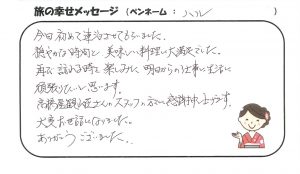 旅の幸せメッセージ（ペンネーム：ハル）
今日初めて連泊させてもらいました。
穏やかな時間と美味しい料理に大満足でした。
再び訪れる時を楽しみに明日からの仕事と生活に
頑張りたいと思います。
スタッフの方に感謝申し上げます。
大変お世話になりました。
ありがとうございました。